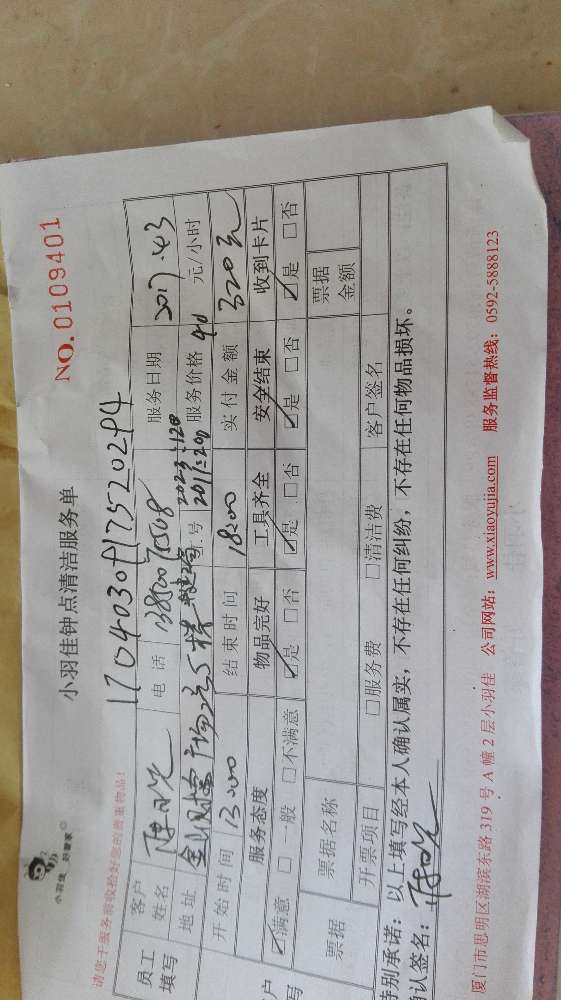 小羽佳 好管家
小羽佳钟点清洁服务单
NO. 0109401
请您于服务前收检好您的贵重物品!
1704030917520294
员工填写
客户姓名 电话 服务日期 2017.4.3
地址 5楼 编号 服务价格 40 元/小时
开始时间 13:00 结束时间 18:00 实付金额 320元
服务态度 物品完好 工具齐全 安全结束 收到卡片
☑满意 □一般 □不满意 ☑是 □否 ☑是 □否 ☑是 □否 ☑是 □否
票据 票据名称 票据金额
开票项目 □服务费 □清洁费 客户签名
特别承诺:以上填写经本人确认属实,不存在任何纠纷,不存在任何物品损坏。
确认签名:
厦门市思明区湖滨东路 319 号 A 幢 2 层小羽佳 公司网站:www.xiaoyujia.com 服务监督热线:0592-5888123